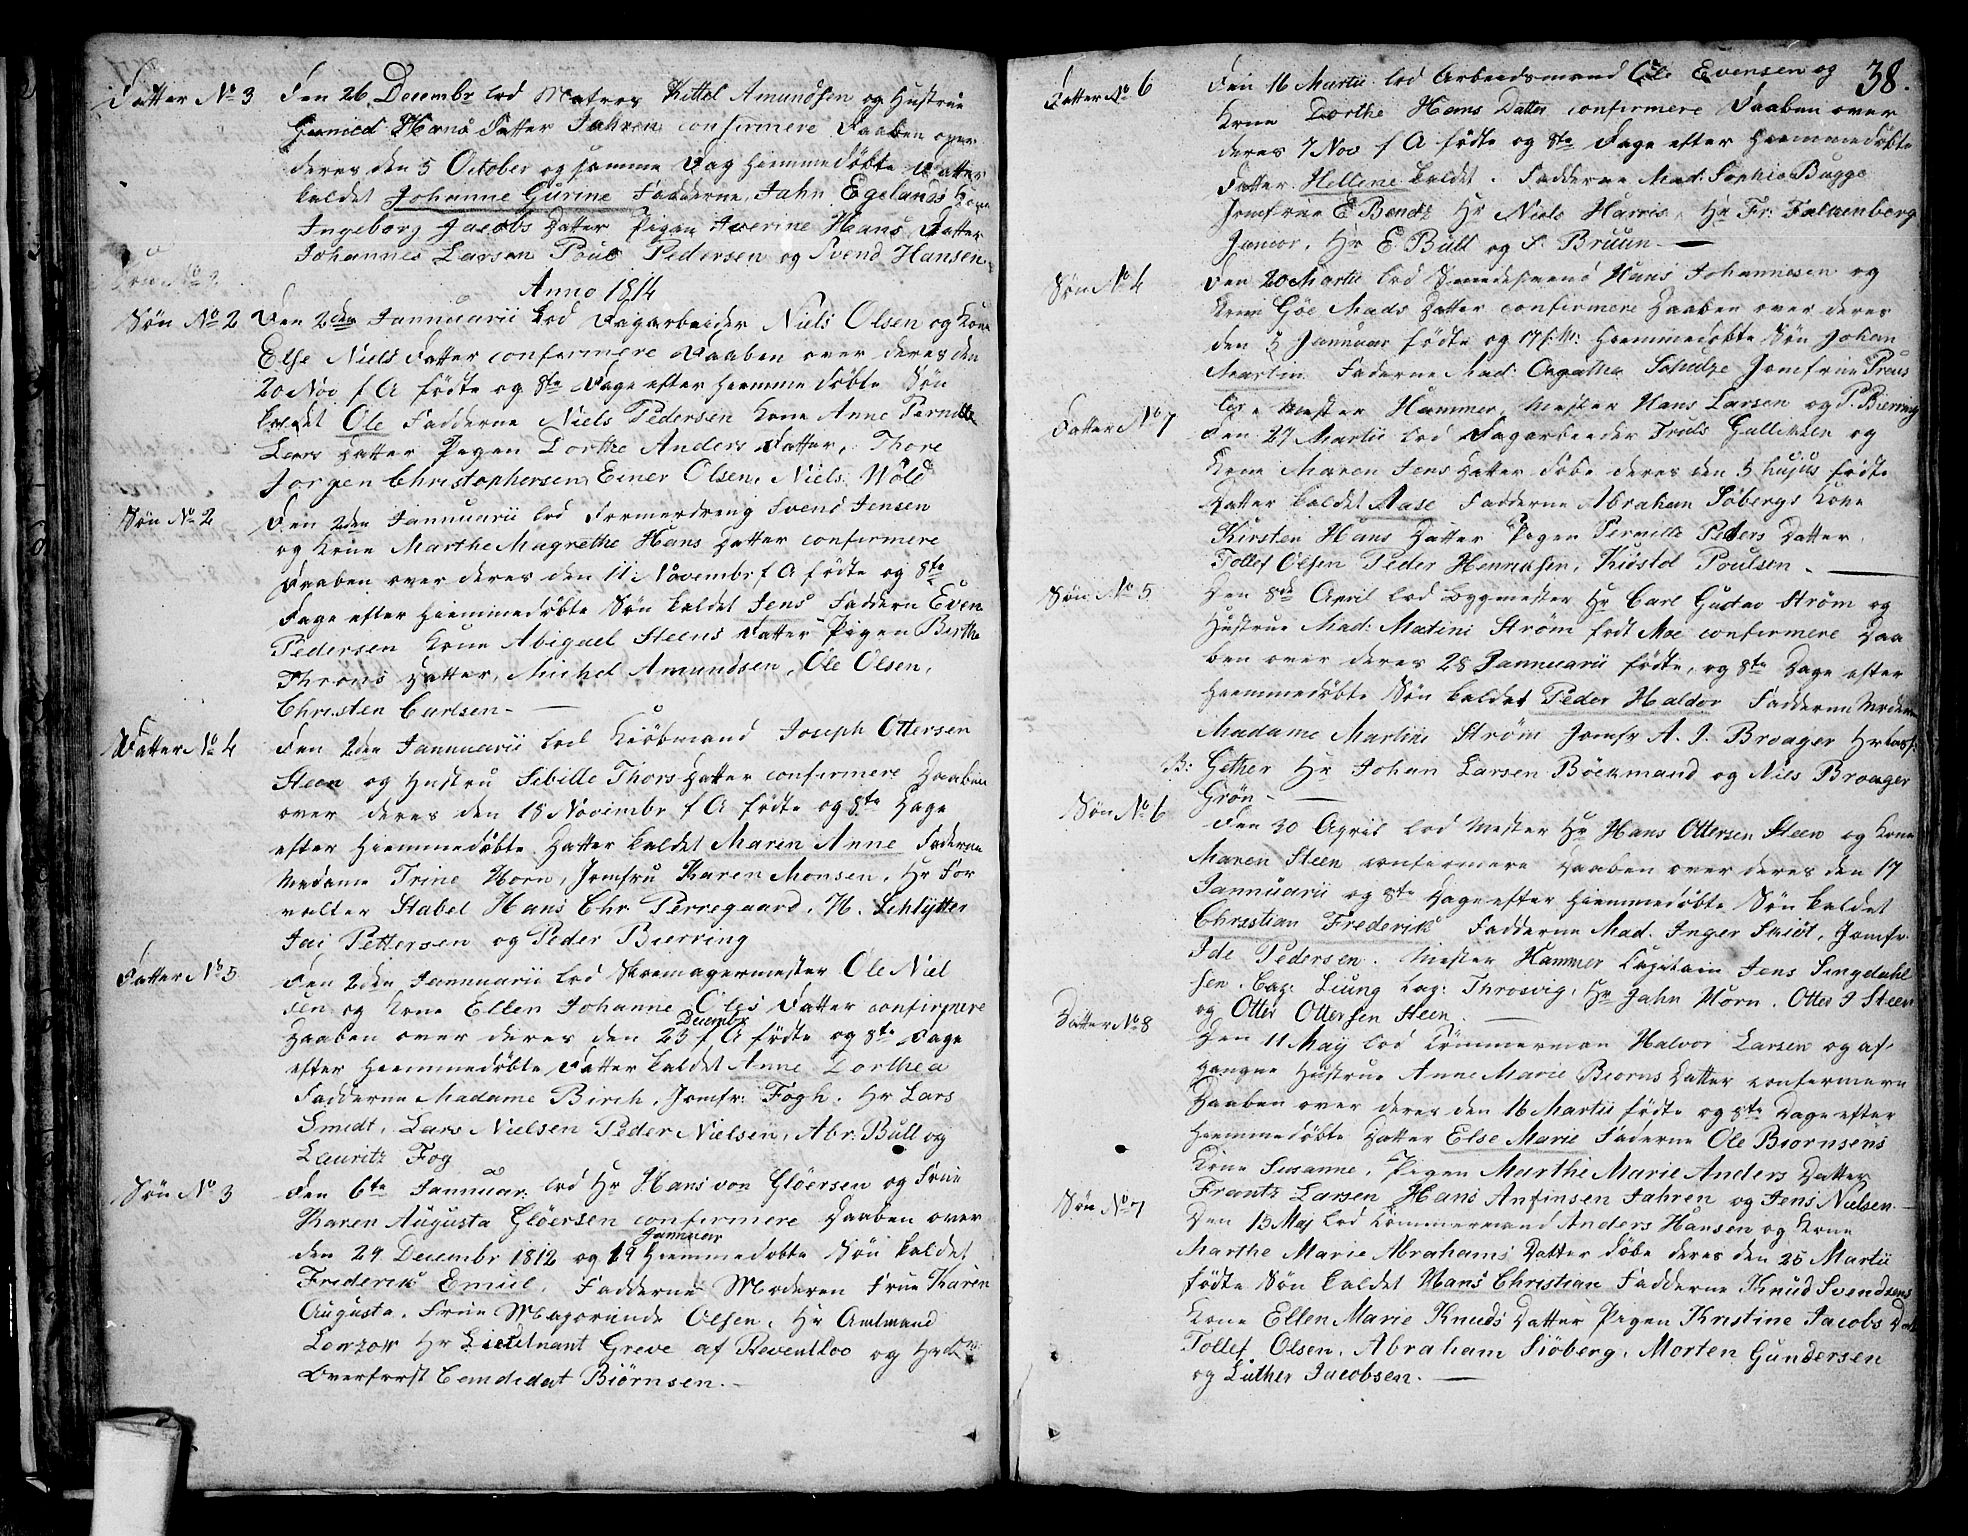 Datter No 3 Den 26 Decembr lod Matros Kittel Amundsen og Hustrue
Gunild Hans Datter Jahren confirmere Daaben over
deres den 5 October og samme Dag hiemmedøbte Datter
kaldet Johanne Gurine Fadderne, Jahn Egelands Kone
Ingeborg Jacobs Datter Pigen Iverine Hans Datter
Johannes Larsen Poul Pedersen og Svend Hansen
Anno 1814
Søn No 2 Den 2den Jannuarii lod Dagarbeider Niels Olsen og Kone
Else Niels Datter confirmere Daaben over deres den
20 Nov f A fødte og 8te Dage efter hiemmedøbte Søn
kaldet Ole Fadderne Niels Pedersen Kone Anne Pernille
Lars Datter Pigen Dorthe Anders Datter, Thore
Jorgen Christophersen, Einer Olsen, Niels Wold
Søn No 2 Den 2den Jannuarii lod Formerdreng Svend Jensen
og Kone Marthe Magrethe Hans Datter confirmere
Daaben over deres den 11 Novembr f A fødte og 8te
Dage efter hiemmedøbte Søn kaldet Jens Faddern Even
Pedersen Kone Abigael Steens Datter Pigen Birthe
Throns Datter, Michel Amundsen, Ole Olsen,
Christen Carlsen -
Datter No 4 Den 2den Jannuarii lod Kiøbmand Joseph Ottersen
Steen og Hustru Sibille Thors Datter confirmere Daaben
over deres den 18 Novembr f A fødte og 8te Dage
efter hiemmedøbte Datter kaldet Maren Anne Faderne
Madame Trine Horn, Jomfru Karen Monsen, Hr For
valter Stabel Hans Chr Perregaard, H. Schlytter
Jai Pettersen og Peder Bierring
Datter No 5 Den 2den Jannuarii lod Skomagermester Ole Niel
sen og Kone Ellen Johanne Oles Datter confirmere
Decembr
Daaben over deres den 23 f A fødte og 8te Dage
efter hiemmedøbte Datter kaldet Anne Dorthea
Fadderne Madame Birch, Jomfr: Fogh. Hr Lars
Smidt, Lars Nielsen Peder Nielsen, Abr: Bull og
Lauritz Fog
Søn No 3 Den 6te Januar: lod Hr Hans von Gløersen og Frue
Karen Augusta Gløersen confirmere Daaben over
Januar
den 24 Decembr 1812 og 19 hiemmedøbte Søn kaldet
Frederik Emiil, Fadderne Moderen Frue Karen
Augusta, Frue Magorinde Olsen, Hr Amtmand
Lowzow Hr Lieutnant Greve af Reventloo og Hr
Overforst Candidat Biørnsen. -
38.
Datter No 6 Den 16 Martii lod Arbeidsmand Ole Evensen og
Kone Dorthe Hans Datter confirmere Daaben over
deres 7 Nov f A fødte og 8te Dage efter hiemmedøbte
Datter Hellene kaldet. Fadderne Mad: Sophie Bugge
Jomfrue E Bendz Hr Niels Harris, Hr Fr: Falkenberg
Junior, Hr E. Bull og S. Bruun -
Søn No 4 Den 20 Martii lod Smedesvend Hans Johannesen og
Kone Gøe Mads Datter confirmere Daaben over deres
den Januar fødte og 17 hiemmedøbte Søn Johan
Martin Faderne Mad: Agatha Schulze Jomfrue Preus
ler, Mester Hammer, Mester Hans Larsen og P. Bierring
Datter No 7 Den 27 Martii lod Dagarbeeder Truls Gulliksen og
Kone Maren Jens Datter døbe deres den 5 hujus fødte
Datter kaldet Aase Fadderne Abraham Søbergs Kone
Kirsten Hans Datter Pigen Pernille Peders Datter,
Tollef Olsen Peder Henriksen, Kiøstel Poulsen -
Søn No 5 Den 8de April lod Bygmester Hr Carl Gustav Strøm og
Hustrue Mad: Matini Strøm født Moe confirmere Daa
ben over deres 28 Jannuarii fødte, og 8te Dage efter
hiemmedøbte Søn kaldet Peder Haldor Fadderne Moderen
Madame Martine Strøm Jomfr A. J. Broager Hr
B: Gether Hr Johan Larsen Böckmand og Niels Broager
Grøn -
Søn No 6 Den 30 April lod Mester Hr Hans Ottersen Steen og Kone
Maren Steen confirmere Daaben over deres den 17
Jannuarii og 8te Dage efter hiemmedøbte Søn kaldet
Christian Frederik Fadderne Mad. Inger Skiöt, Jomfr
Ide Pedersen. Mester Hammer Capitain Jens Lingdahl
sen. Cap: Liung Cap: Throsvig, Hr Jahn Horn. Otter J Steen
og Otter Ottersen Steen.
Datter No 8 Den 11 May lod Tømmerman Halvor Larsen og af¬
gangne Hustrue Anne Marie Biorns Datter confermere
Daaben over deres den 16 Martii fødte og 8te Dage efter
hiemmedøbte Datter Else Marie Faderne Ole Biørnsens
Kone Susanne, Pigen Marthe Marie Anders Datter
Frantz Larsen Hans Anfinsen Jahren og Jens Nielsen. -
Søn No 7 Den 15 Maj lod Tømmermand Anders Hansen og Kone
Marthe Marie Abrahams Datter døbe deres den 25 Martii
fødte Søn kaldet Hans Christian Fadderne Knud Svendsens
Kone Ellen Marie Knuds Datter Pigen Kristine Jacobs
Tollef Olsen, Abraham Siöberg, Morten Gundersen
og Luther Jacobsen. -